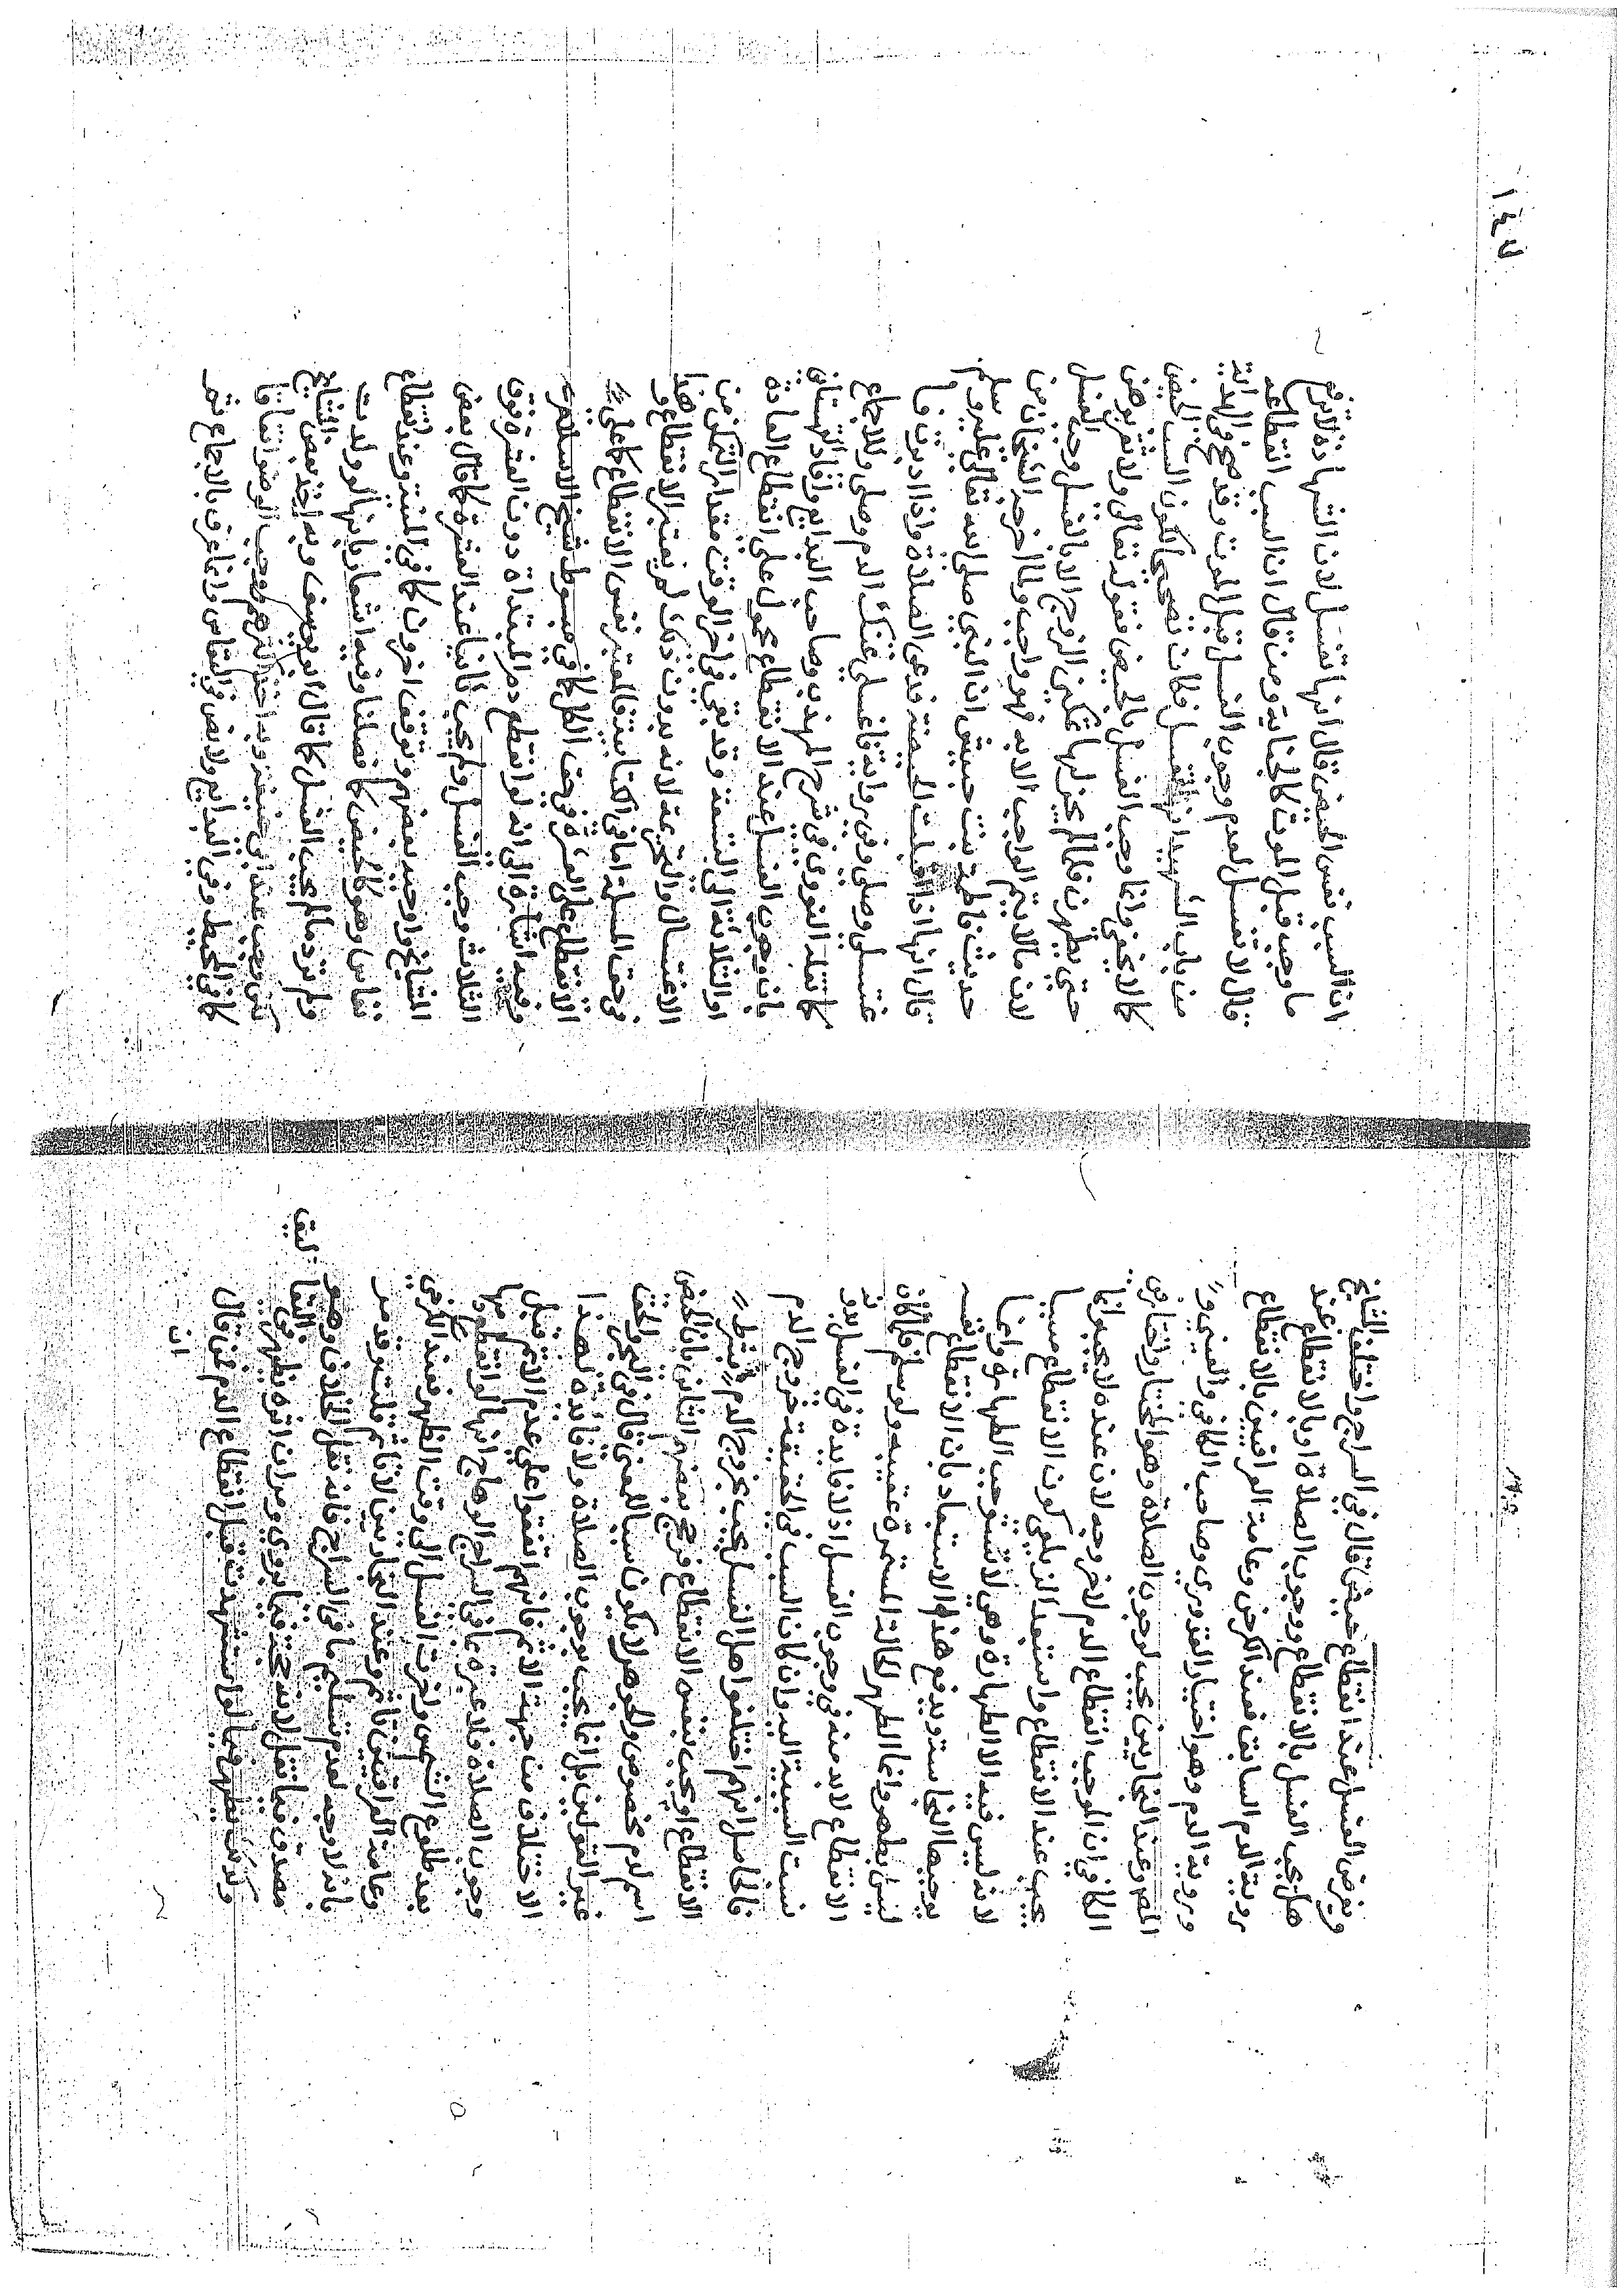 ويفرض الغسل عند انقطاع حيض قال في السراج واختلف المشايخ
هل يجب الغسل بالانقطاع ووجوب الصلاة او بالانقطاع عند
روية الدم السابق فعند الكرخي وعامة العراقيين بالانقطاع
وروية الدم وهو اختيار القدوري وصاحب الكافي والعيني و
المص وعند البخاريين يجب لوجوب الصلاة وهو المختار واختار في
الكافي ان الموجب انقطاع الدم لا خروجه لان عنده لا يجب وانما
يجب عند الانقطاع واستبعد الزيلعي كون الانقطاع سببا
لانه ليس فيه الا الطهارة وهي لا تستوجب الطهارة وانما
يوجبها النجاسة ويدفع هذا الاستبعاد بان الانقطاع نفسه
ليس بطهر وانما الطهر الحالة المستمرة عقيبه ولو سلم فلما كان
الانقطاع لا بد منه في وجوب الغسل اذ لا فايدة في الغسل بدونه
نسبت السببية اليه وان كان السبب في الحقيقة خروج الدم
فالحاصل انهم اختلفوا هل الغسل يجب بخروج الدم بشرط
الانقطاع او يجب بنفس الانقطاع فرجح بعضهم الثاني بان الحيض
اسم لدم مخصوص والجوهر لا يكون سببا للمعنى قال في البحر والحق
غير القولين بل انما يجب بوجوب الصلاة ولا فائدة لهذا
الاختلاف من جهة الاثم فانهم اتفقوا على عدم الاثم قبل
وجوب الصلاة فلا عبرة بما في السراج الوهاج انها لو انقطع دمها
بعد طلوع الشمس واخرت الغسل الى وقت الظهر فعند الكرخي
وعامة العراقيين تاثم وعند البخاريين لا تاثم قلت وقد مر
بانه لا وجه لعدم تسليم ما في السراج فانه نقل الخلاف وهو
مصدق فيما ينقل لانه حجة فيما يروي ومران اثره يظهر في التعاليق
وكذلك يظهر فيما لو استشهدت قبل انقطاع الدم فمن قال
ان
١٤٧
ان السبب نفس الحيض قال انها تغسل لان الشهادة لا ترفع
ما وجب قبل الموت كالجنابة ومن قال ان السبب انقطاعه
قال لا تغسل لعدم وجوب الغسل قبل الموت وقد صحح في الهداية
من باب الشهيد انها تغسل فكان تصحيحا لكون السبب الحيض
كما لا يخفى وانما وجب الغسل بالحيض فقوله تعالى ولا تقربوهن
حتى يطهرن فلما لم يجز لها تمكين الزوج الا بالغسل وجب الغسل
لان ما لا يتم الواجب الا به فهو واجب ولما اخرجه الشيخان من
حديث فاطمة بنت حبيش ان النبي صلى الله تعالى عليه وسلم
قال لها اذا اقبلت الحيضة فدعي الصلاة واذا ادبرت فا
غتسلي وصلي وفي رواية فاغسلي عنك الدم وصلي وللاجماع
كما نقله النووي في شرح المهذب وصاحب البدايع وافاد القهستاني
بان وجوب الغسل عند الانقطاع محمول على انقطاع العادة
او الثلاثة الى التسعة وقد بقي في اخر الوقت مقدار التمكن من
الاغتسال والتحريمة لانه بدون ذلك لم يعتبر الانقطاع وهذا
في حق المسلمة اما في الكتابية فالمعتبر نفس الانقطاع كما على
الانقطاع على العشرة في حق الكل كما في مبسوط شيخ الاسلام
وفيه اشارة الى انه لو انقطع دم المبتداة دون العشرة فوق
الثلاث وجب الغسل ولم يكن ثانيا عند العشرة كما قال بعض
المشايخ واوجبه بعضهم وتوقف اخرون كما في المنية وعند انقطاع
نفاس وهو كالحيض كما فصلنا وفيه اشعار بانها لو ولدت
ولم تر دما لم يجب الغسل كما قال ابو يوسف وبه اخذ بعض المشايخ
لكن وجب عند ابي حنيفة وبه اخذ اكثرهم ووجب الوضو اتفاقا
كما في المحيط وفي البدايع ولا نص في النفاس وانما عرف بالاجماع ثم